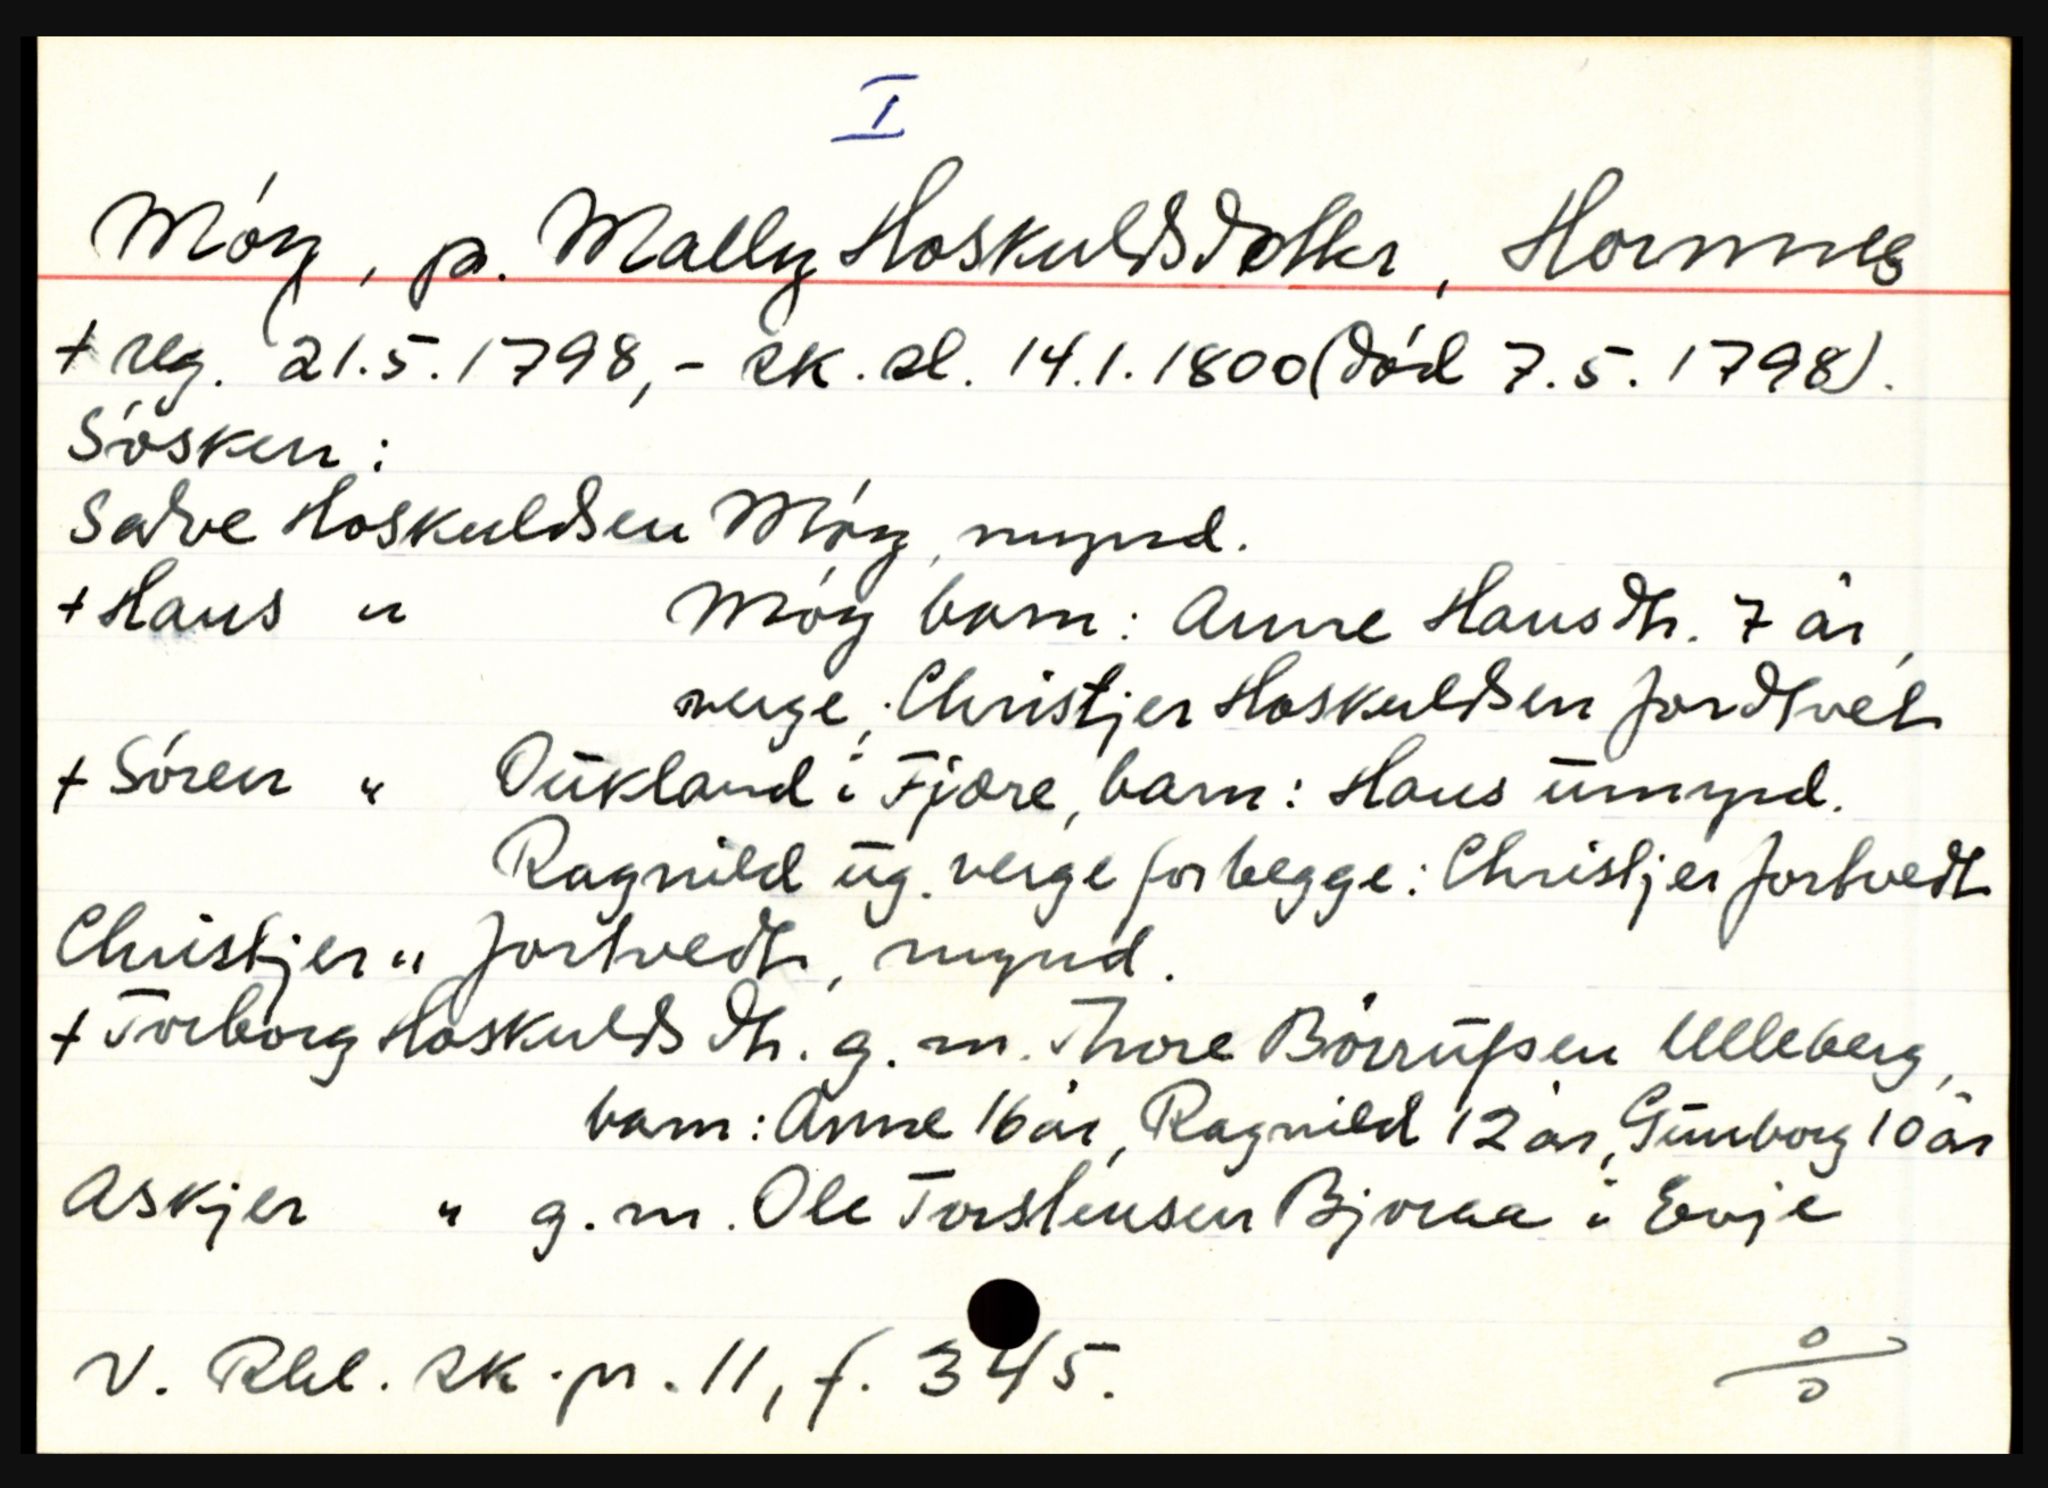 I
Móy, p. Mally Hoskuldsdotter, Hornnes
+ reg. 21.5.1798, - sk. sl. 14.1.1800 (død 7.5.1798).
Søsken:
Salve Hoskuldsen Móy, mynd.
+ Hans " Móy barn: Anne Hansdtr. 7 år,
verge: Christjer Hoskuldsen Jordtvet
+ Sóren " Oukland i Fjære, barn: Hans umynd.
Ragnild ug. verge for begge: Christjer Jortvedt
Christjer " Jortvedt, mynd.
+ Torborg Hoskulds dtr. g. m. Thore Börrufsen Ulleberg,
barn: Anne 16 år, Ragnild 12 år, Gunborg 10 år
Askjer " g. m. Ole Torstensen Bjoraa i Evje
V. Rbl. sk. pr. 11, f. 345.
0/0